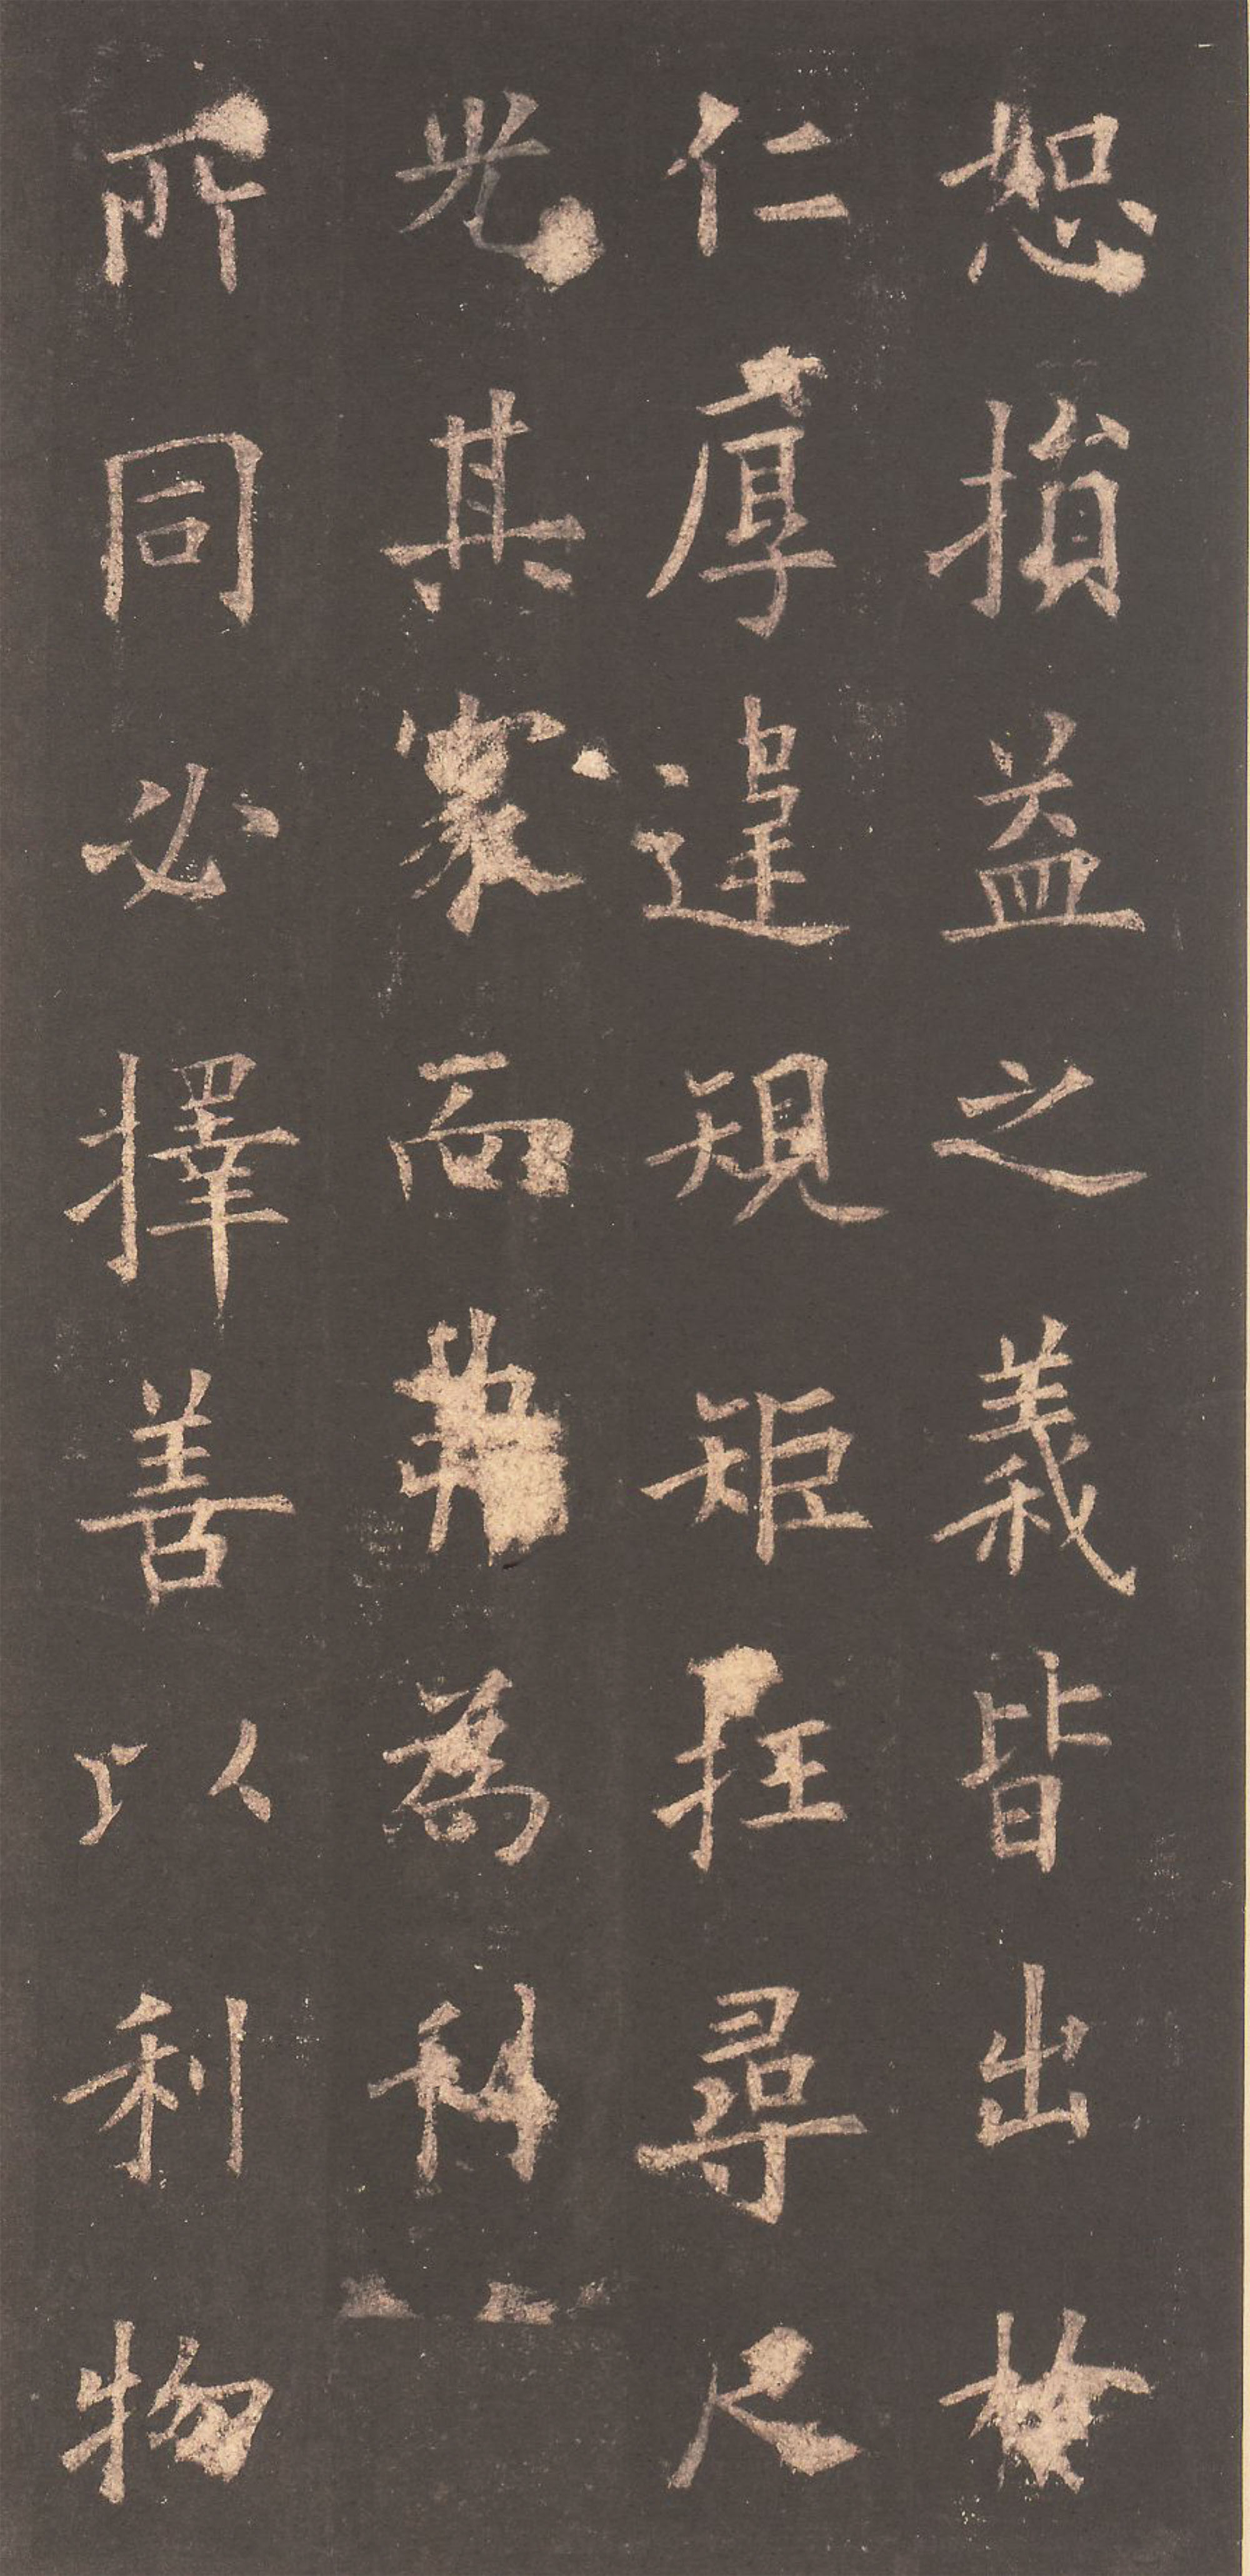 恕損益之義皆出扵
仁厚違規矩抂尋尺
光其家而為利
所同必擇善以利物